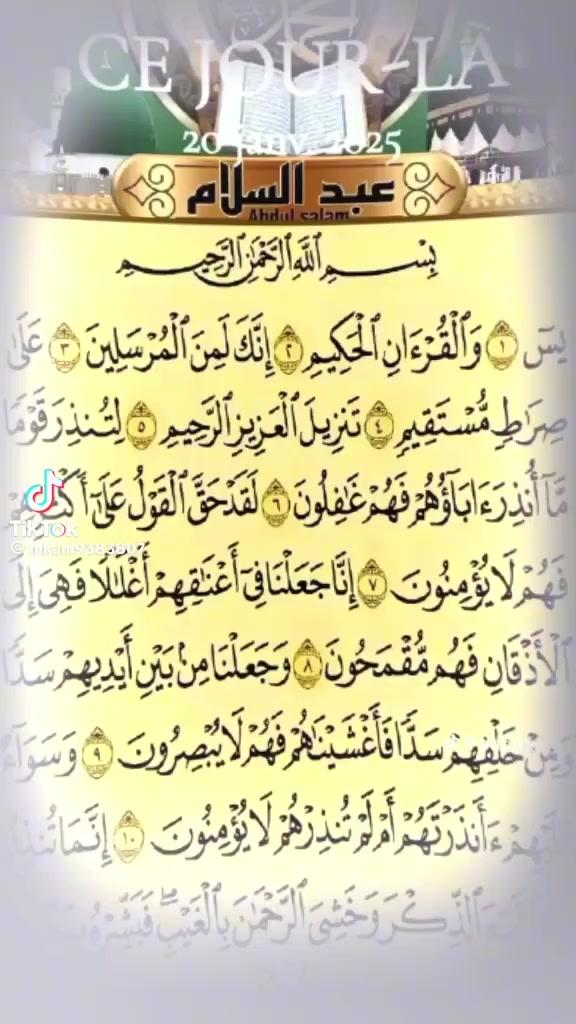 CE JOUR-LÀ
20 janv. 2025
عبد السلام
Abdul salam
بِسْمِ ٱللَّهِ ٱلرَّحْمَٰنِ ٱلرَّحِيمِ
يسٓ ١ وَٱلْقُرْءَانِ ٱلْحَكِيمِ ٢ إِنَّكَ لَمِنَ ٱلْمُرْسَلِينَ ٣ عَلَىٰ
صِرَٰطٍ مُّسْتَقِيمٍ ٤ تَنزِيلَ ٱلْعَزِيزِ ٱلرَّحِيمِ ٥ لِتُنذِرَ قَوْمًا
مَّآ أُنذِرَ ءَابَآؤُهُمْ فَهُمْ غَٰفِلُونَ ٦ لَقَدْ حَقَّ ٱلْقَوْلُ عَلَىٰٓ
فَهُمْ لَا يُؤْمِنُونَ ٧ إِنَّا جَعَلْنَا فِىٓ أَعْنَٰقِهِمْ أَغْلَٰلًا فَهِىَ إِلَى
ٱلْأَذْقَانِ فَهُم مُّقْمَحُونَ ٨ وَجَعَلْنَا مِنۢ بَيْنِ أَيْدِيهِمْ سَدًّا
وَمِنْ خَلْفِهِمْ سَدًّا فَأَغْشَيْنَٰهُمْ فَهُمْ لَا يُبْصِرُونَ ٩ وَسَوَآءٌ
ءَأَنذَرْتَهُمْ أَمْ لَمْ تُنذِرْهُمْ لَا يُؤْمِنُونَ ١٠ إِنَّمَا
ٱلذِّكْرَ وَخَشِىَ ٱلرَّحْمَٰنَ بِٱلْغَيْبِ ۖ فَبَشِّرْهُ
TikTok